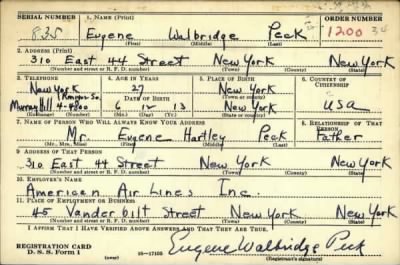 SERIAL NUMBER 1. NAME (Print) ORDER NUMBER
835 Eugene Walbridge Peck 1200
(First) (Middle) (Last)
2. ADDRESS (Print)
310 East 44 Street New York New York
(Number and street or R. F. D. number) (Town) (County) (State)
3. TELEPHONE 4. AGE IN YEARS 5. PLACE OF BIRTH 6. COUNTRY OF CITIZENSHIP
New York 27 New York
(Town or county)
Murray Hill 4-9800 6 12 13 New York USA
(Exchange) (Number) (Mo.) (Day) (Yr.) (State or country)
7. NAME OF PERSON WHO WILL ALWAYS KNOW YOUR ADDRESS 8. RELATIONSHIP OF THAT PERSON
Mr. Eugene Hartley Peck Father
(Mr., Mrs., Miss) (First) (Middle) (Last)
9. ADDRESS OF THAT PERSON
310 East 44 Street New York New York
(Number and street or R. F. D. number) (Town) (County) (State)
10. EMPLOYER'S NAME
American Air Lines Inc.
11. PLACE OF EMPLOYMENT OR BUSINESS
45 Vanderbilt Street New York New York
(Number and street or R. F. D. number) (Town) (County) (State)
I AFFIRM THAT I HAVE VERIFIED ABOVE ANSWERS AND THAT THEY ARE TRUE.
REGISTRATION CARD
D. S. S. Form 1 (over) 16-17105 Eugene Walbridge Peck
(Registrant's signature)